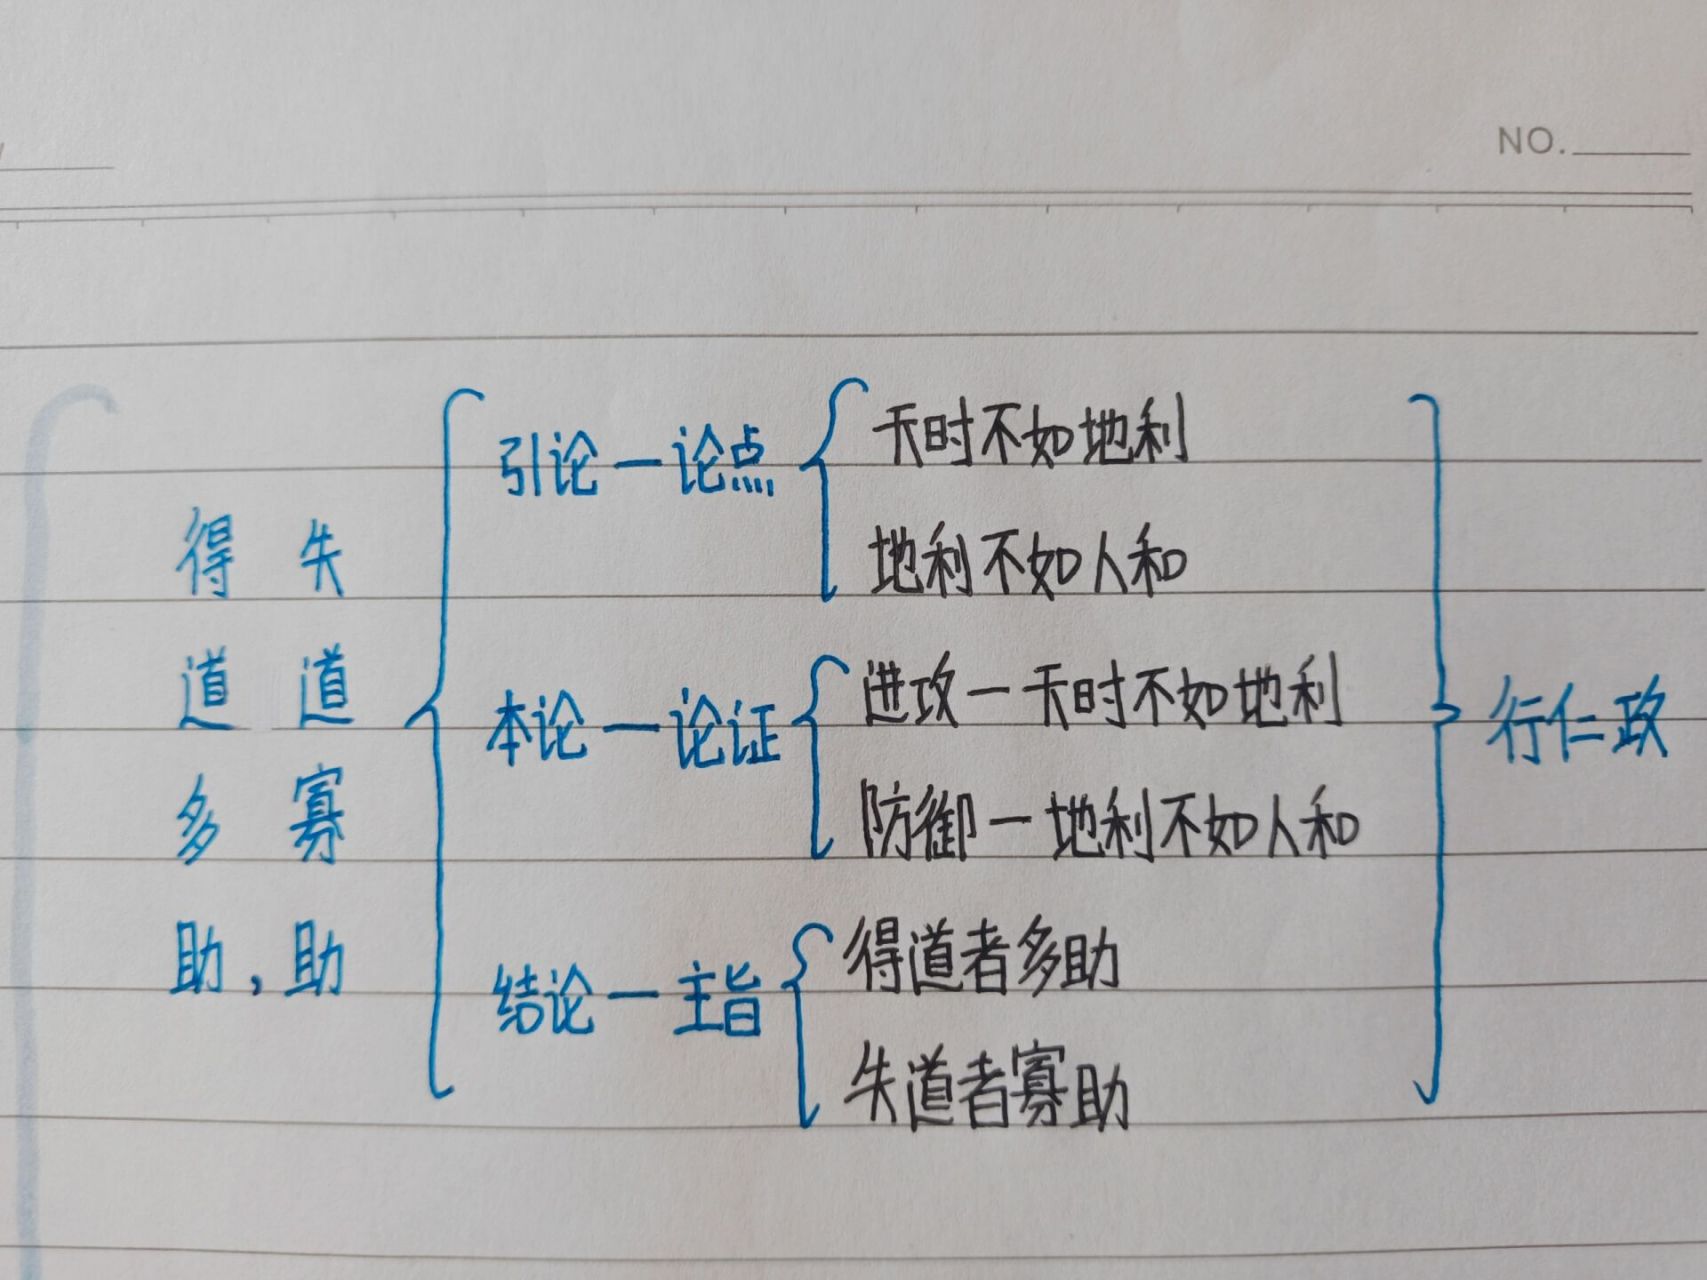 NO.
得道多助,
失道寡助
引论一论点
天时不如地利
地利不如人和
本论一论证
进攻一天时不如地利
防御一地利不如人和
结论一主旨
得道者多助
失道者寡助
行仁政